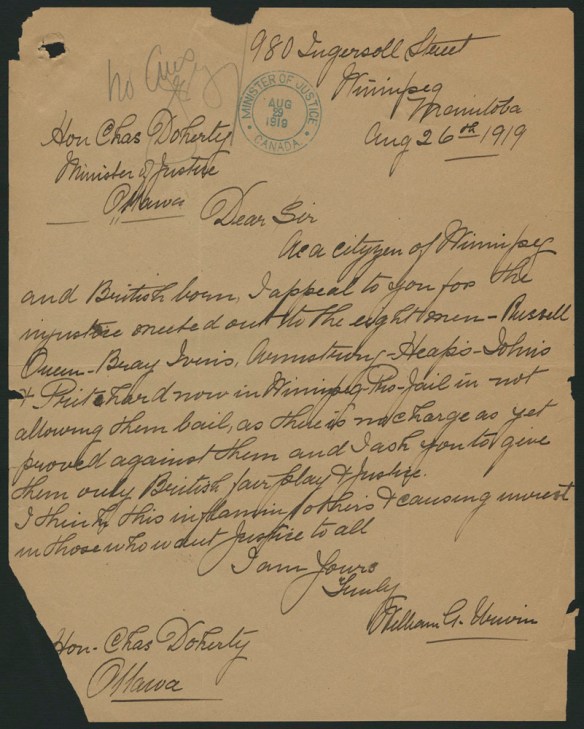 980 Ingersoll Street
Winnipeg
Manitoba
Aug 26th 1919
no Ans
MINISTER OF JUSTICE
AUG
29
1919
CANADA
Hon Chas Doherty
Minister of Justice
Ottawa
Dear Sir
As a cityzen of Winnipeg
and British born, I appeal to you for the
injustice meeted out to the eight men - Russell
Queen - Bray Ivens, Armstrong - Heaps - Johns
& Pritchard now in Winnipeg Pro-Jail in not
allowing them bail, as there is no charge as yet
proved against them and I ask you to give
them only British fair play & Justice.
I think this inflaming others & causing unrest
in those who want Justice to all
I am Yours
Truly
William G. Unwin
Hon- Chas Doherty
Ottawa